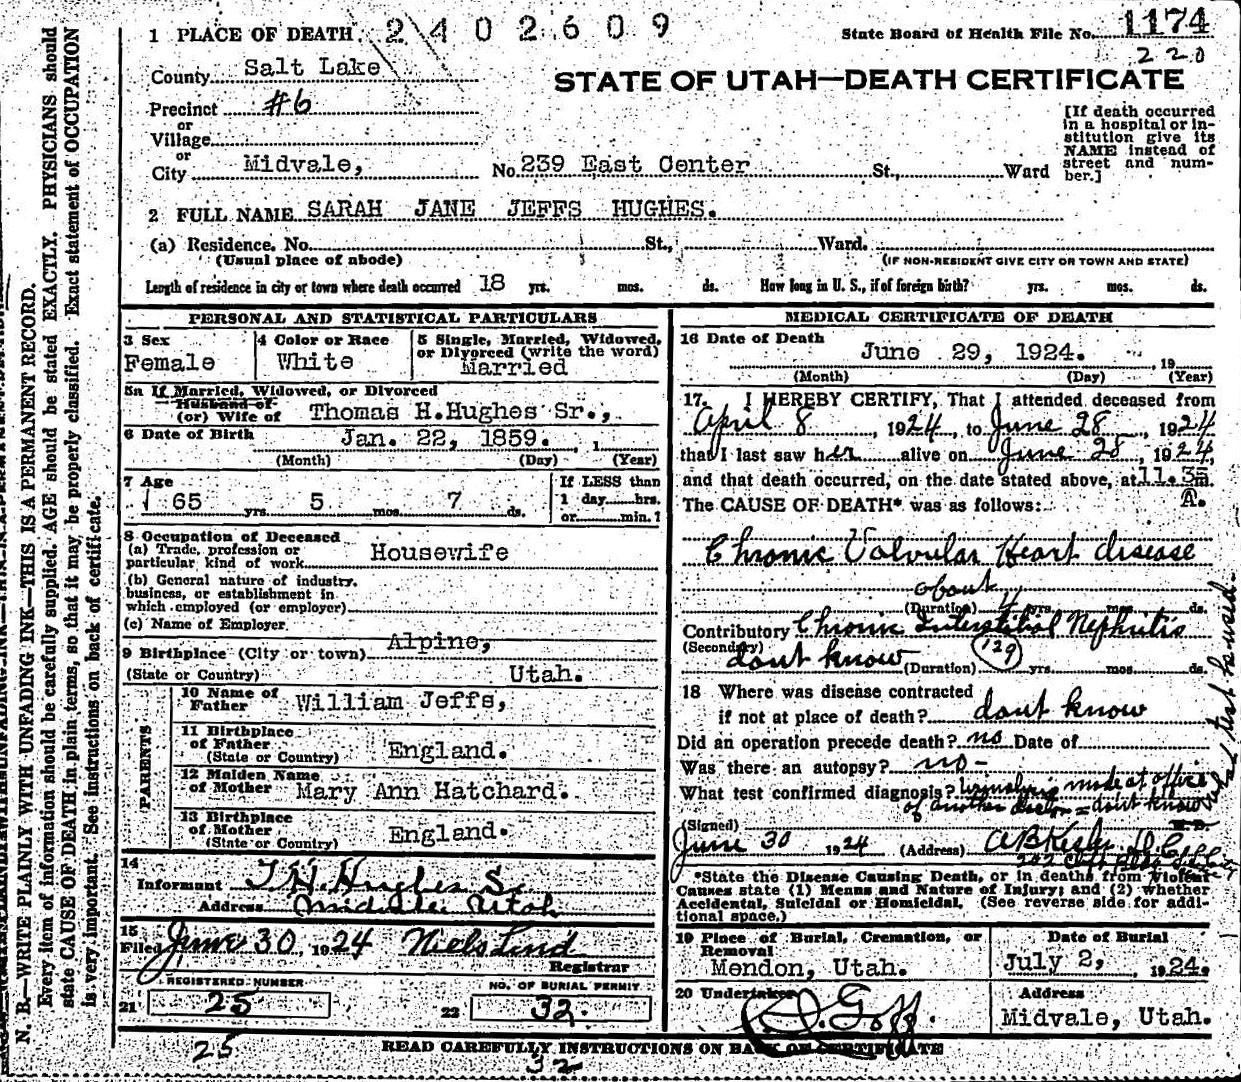 1 PLACE OF DEATH. 2402609
State Board of Health File No. 1174
220
County Salt Lake
STATE OF UTAH—DEATH CERTIFICATE
Precinct #6
or
Village
or
City Midvale, No. 239 East Center St., Ward
[If death occurred
in a hospital or in-
stitution give its
NAME instead of
street and num-
ber.]
2 FULL NAME SARAH JANE JEFFS HUGHES.
(a) Residence. No. St., Ward.
(Usual place of abode) (IF NON-RESIDENT GIVE CITY OR TOWN AND STATE)
Length of residence in city or town where death occurred 18 yrs. mos. ds. How long in U. S., if of foreign birth? yrs. mos. ds.
PERSONAL AND STATISTICAL PARTICULARS
3 Sex
Female
4 Color or Race
White
5 Single, Married, Widowed,
or Divorced (write the word)
Married
5a If Married, Widowed, or Divorced
Husband of
(or) Wife of Thomas H.Hughes Sr.,
6 Date of Birth Jan. 22, 1859. 1
(Month) (Day) (Year)
7 Age
65 yrs. 5 mos. 7 ds.
If LESS than
1 day hrs.
or min.?
8 Occupation of Deceased
(a) Trade, profession or
particular kind of work Housewife
(b) General nature of industry.
business, or establishment in
which employed (or employer)
(c) Name of Employer
9 Birthplace (City or town) Alpine,
(State or Country) Utah.
PARENTS
10 Name of
Father William Jeffs,
11 Birthplace
of Father
(State or Country) England.
12 Maiden Name
of Mother Mary Ann Hatchard.
13 Birthplace
of Mother
(State or Country) England.
14
Informant T H Hughes Sr
Address Midvale Utah
15
Filed June 30, 1924 Niels Lind
Registrar
REGISTERED NUMBER
21 25
NO. OF BURIAL PERMIT
22 32.
25
32
MEDICAL CERTIFICATE OF DEATH
16 Date of Death
June 29, 1924. 19
(Month) (Day) (Year)
17. I HEREBY CERTIFY, That I attended deceased from
April 8, 1924, to June 28, 1924
that I last saw her alive on June 28, 1924,
and that death occurred, on the date stated above, at 11.35 m.
A.
The CAUSE OF DEATH* was as follows:
Chronic Valvular Heart disease
about
(Duration) 4 yrs. mos. ds.
Contributory Chronic Interstitial Nephritis
(Secondary) dont know (Duration) 129 yrs. mos. ds.
18 Where was disease contracted
if not at place of death? dont know
Did an operation precede death? no Date of
Was there an autopsy? no-
What test confirmed diagnosis? Urinalysis made at office
of another doctor = dont know
what test he used.
(Signed)
June 30 1924 (Address)
*State the Disease Causing Death, or in deaths from Violent
Causes state (1) Means and Nature of Injury; and (2) whether
Accidental, Suicidal or Homicidal. (See reverse side for addi-
tional space.)
19 Place of Burial, Cremation, or
Removal
Mendon, Utah.
Date of Burial
July 2, 1924.
20 Undertaker
Goff.
Address
Midvale, Utah.
READ CAREFULLY INSTRUCTIONS ON BACK OF CERTIFICATE
N. B.—WRITE PLAINLY WITH UNFADING INK—THIS IS A PERMANENT RECORD.
Every item of information should be carefully supplied. AGE should be stated EXACTLY. PHYSICIANS should
state CAUSE OF DEATH in plain terms, so that it may be properly classified. Exact statement of OCCUPATION
is very important. See instructions on back of certificate.